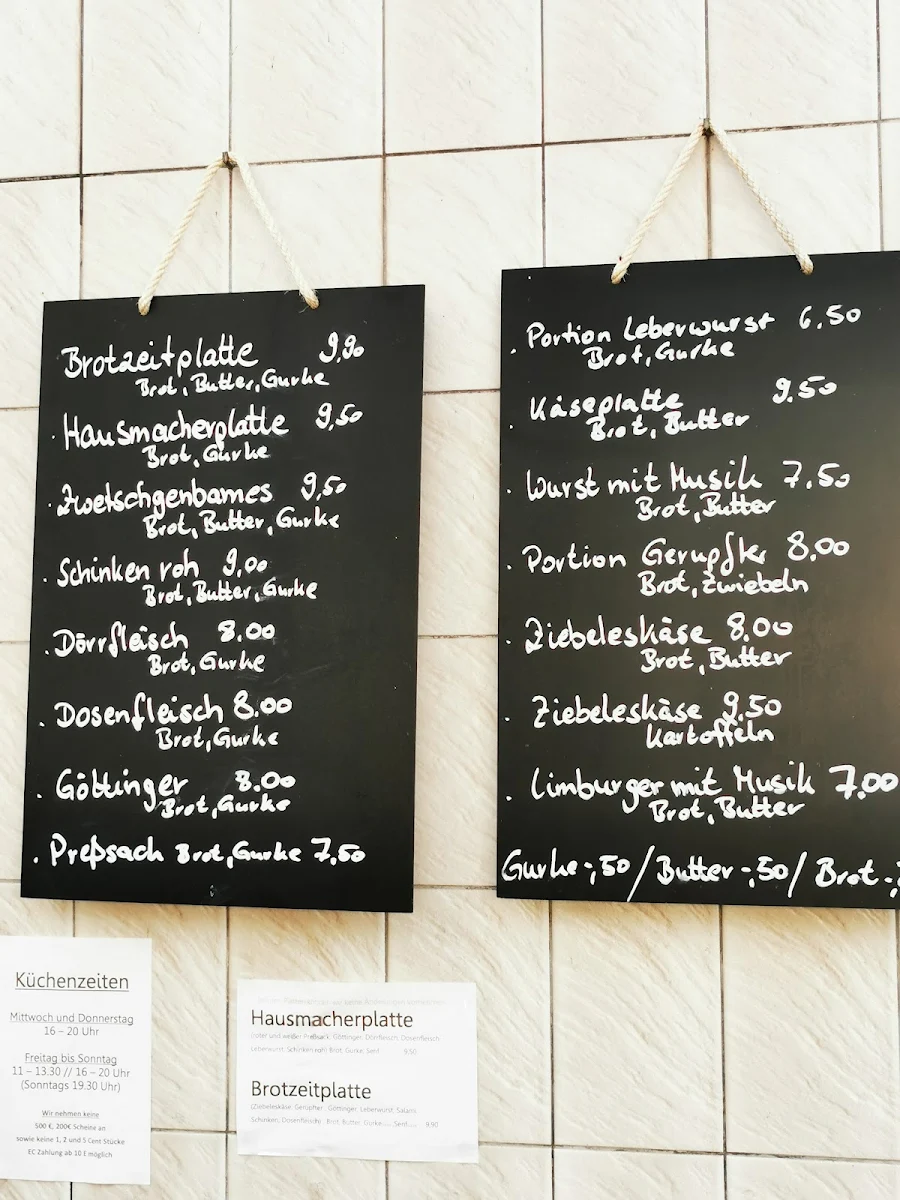 Brotzeitplatte 9,90
Brot, Butter, Gurke
· Hausmacherplatte 9,50
Brot, Gurke
· Zwetschgenbames 9,50
Brot, Butter, Gurke
· Schinken roh 9,00
Brot, Butter, Gurke
· Dörrfleisch 8.00
Brot, Gurke
· Dosenfleisch 8.00
Brot, Gurke
· Göttinger 8.00
Brot, Gurke
· Preßsach Brot, Gurke 7,50
· Portion Leberwurst 6,50
Brot, Gurke
· Käseplatte 9.50
Brot, Butter
· Wurst mit Musik 7.50
Brot, Butter
· Portion Gerupfter 8,00
Brot, Zwiebeln
· Ziebeleskäse 8.00
Brot, Butter
· Ziebeleskäse 9,50
Kartoffeln
· Limburger mit Musik 7,00
Brot, Butter
Gurke -,50 / Butter -,50 / Brot -,
Küchenzeiten
Mittwoch und Donnerstag
16 – 20 Uhr
Freitag bis Sonntag
11 – 13.30 // 16 – 20 Uhr
(Sonntags 19.30 Uhr)
Wir nehmen keine
500 €, 200€ Scheine an
sowie keine 1, 2 und 5 Cent Stücke
EC Zahlung ab 10 € möglich
Hausmacherplatte
(roter und weißer Preßsack, Göttinger, Dörrfleisch, Dosenfleisch
Leberwurst, Schinken roh) Brot, Gurke, Senf 9,50
Brotzeitplatte
(Ziebeleskäse, Gerupfter, Göttinger, Leberwurst, Salami,
Schinken, Dosenfleisch), Brot, Butter, Gurke, Senf 9,90